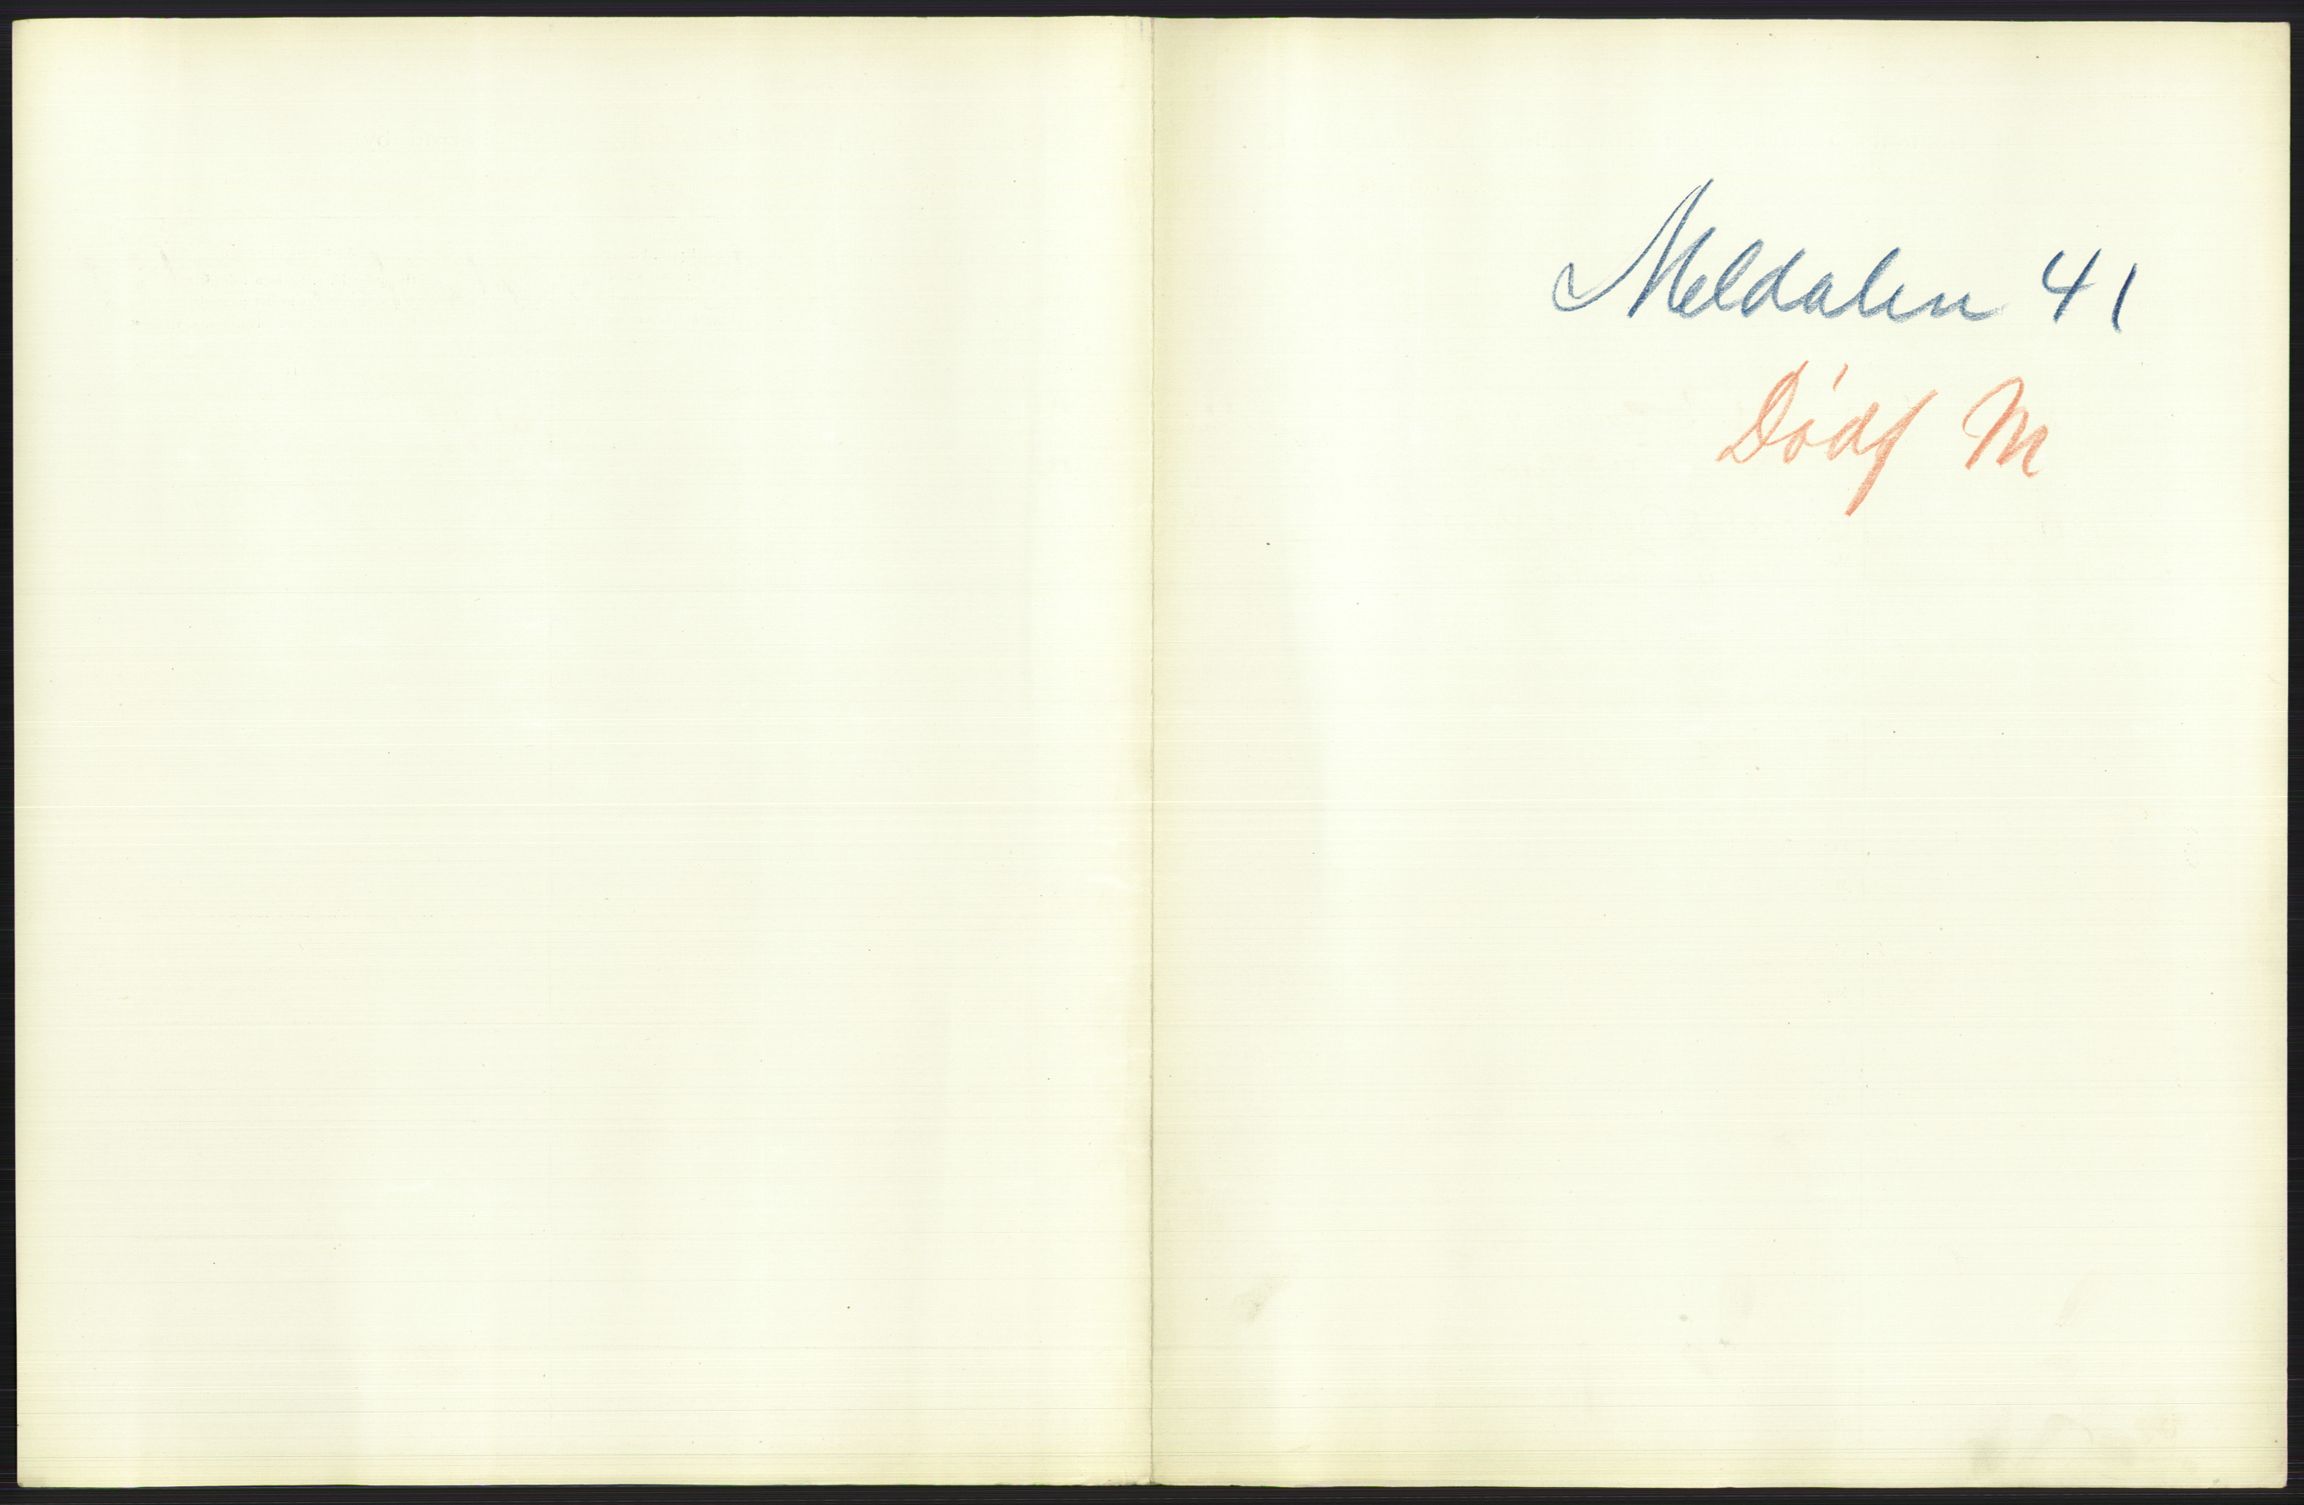 Meldalen 41
Dødf M